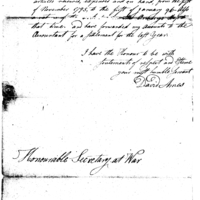 articles received, expended and on hand, from the first
of November 1795 to the first of January 96
that time and have forwarded my accounts to the
Accountant for a settlement for the last year.
I have the Honour to be with
Sentiments of respect and Esteem
your most humble Servant
David Ames
Honourable Secretary at War